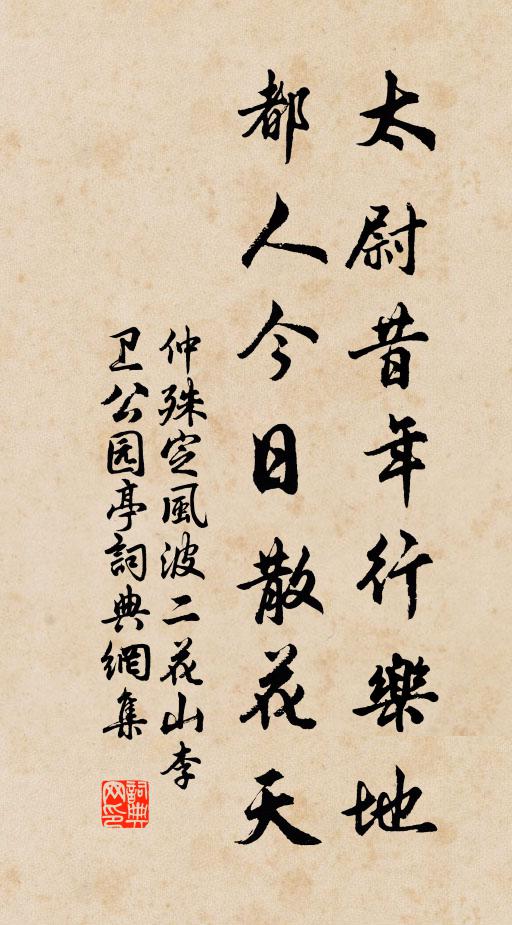 太尉昔年行樂地
都人今日散花天
仲殊定風波二花山李
卫公园亭詞典網集
詞典网印